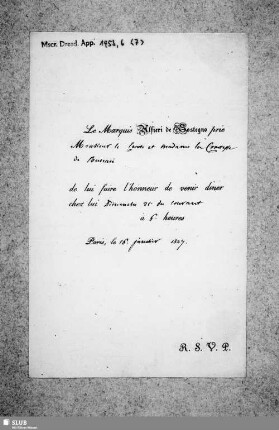 Mscr. Dresd. App. 1954, 6 (7)
Le Marquis Alfieri de Sostegno prie
Monsieur le Comte et Madame la Comtesse
de
de lui faire l'honneur de venir dîner
chez lui Dimanche 21 du courant
à 6 heures
Paris, le 16 janvier 1827.
R. S. V. P.
SLUB